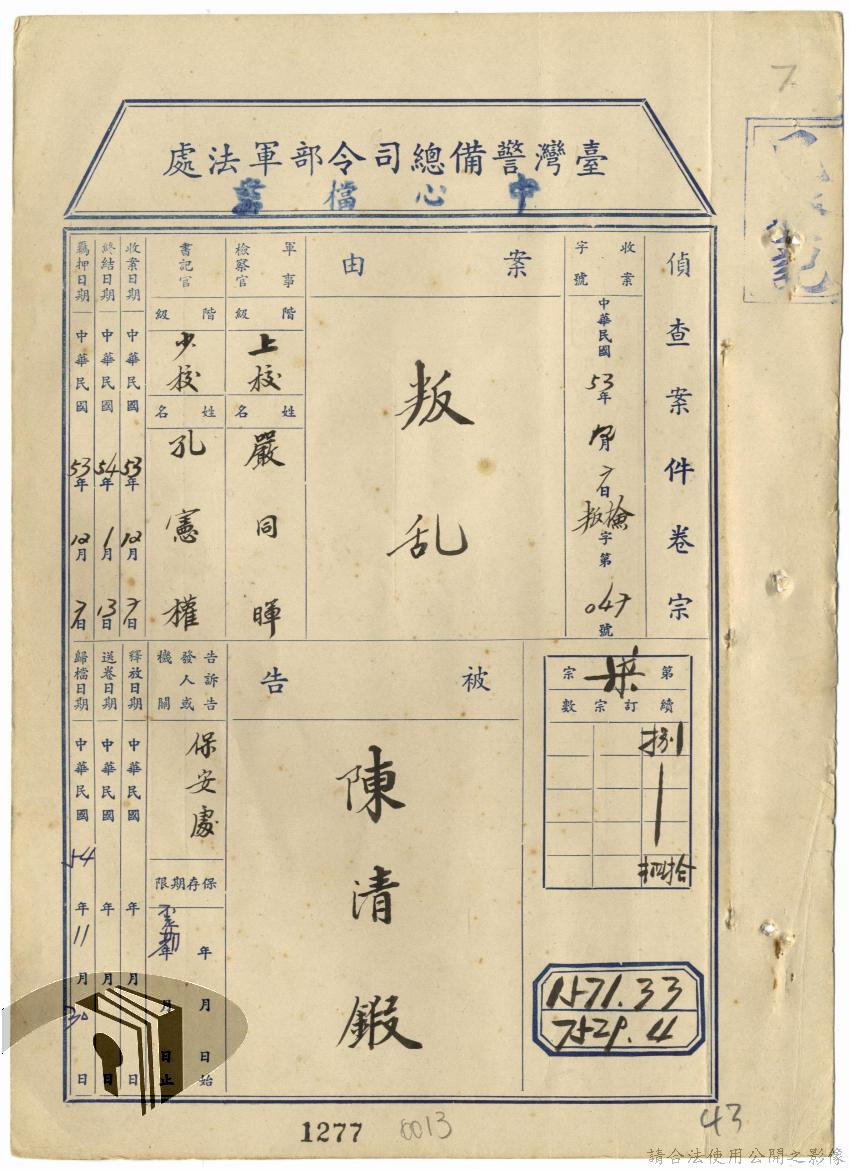 臺灣警備總司令部軍法處
中心檔案
偵查案件卷宗
收案字號
中華民國53年 月 日 字第047號
案由
叛乱
軍事檢察官
階級
上校
姓名
嚴同暉
書記官
階級
少校
姓名
孔憲權
收案日期 中華民國53年12月7日
終結日期 中華民國54年1月13日
羈押日期 中華民國53年12月7日
第柒宗
續訂宗數
捌
拾
被告
陳清鍜
告訴告發人或機關
保安處
保存期限
年月日始
年月日止
釋放日期 中華民國 年 月 日
送卷日期 中華民國 年 月 日
歸檔日期 中華民國54年11月30日
1571.33
7529.4
1277
0013
43
7
請合法使用公開之影像